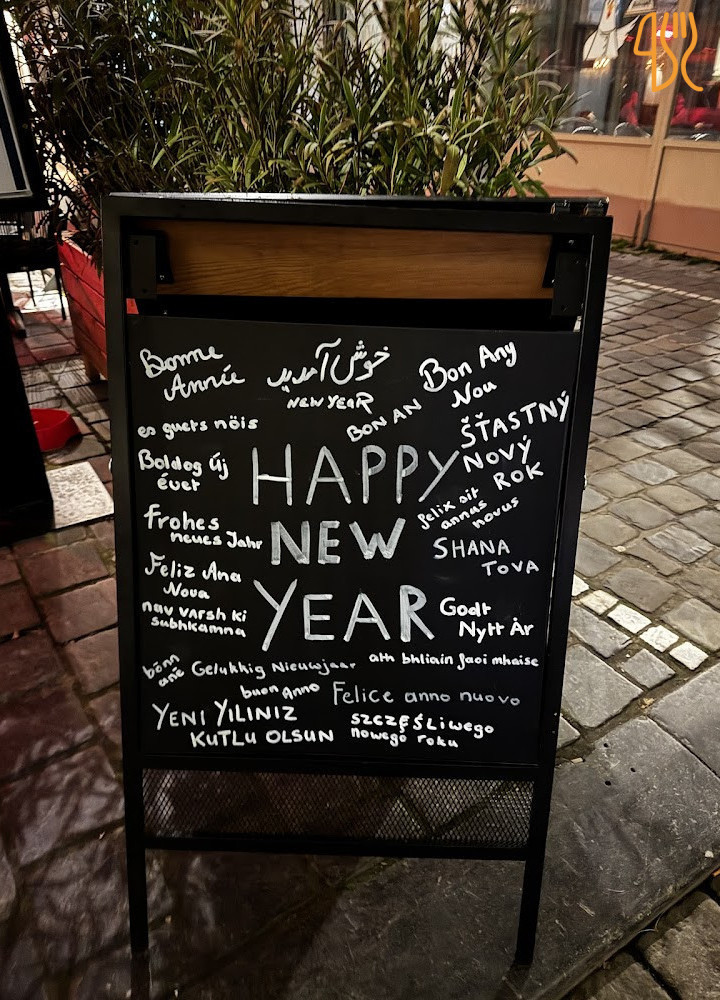 Bonne
Année
خوش آمدید
NEW YEAR
BON AN
Bon Any
Nou
es guets nöis
ŠŤASTNÝ
NOVÝ
ROK
Boldog új
évet
HAPPY
NEW
YEAR
felix sit
annus
novus
frohes
neues Jahr
SHANA
TOVA
Feliz Ana
Nova
nav varsh ki
subhkamna
Godt
Nytt År
bonn
ané
Gelukkig Nieuwjaar
ath bhliain faoi mhaise
buon Anno
Felice anno nuovo
YENİ YILINIZ
KUTLU OLSUN
szczęśliwego
nowego roku